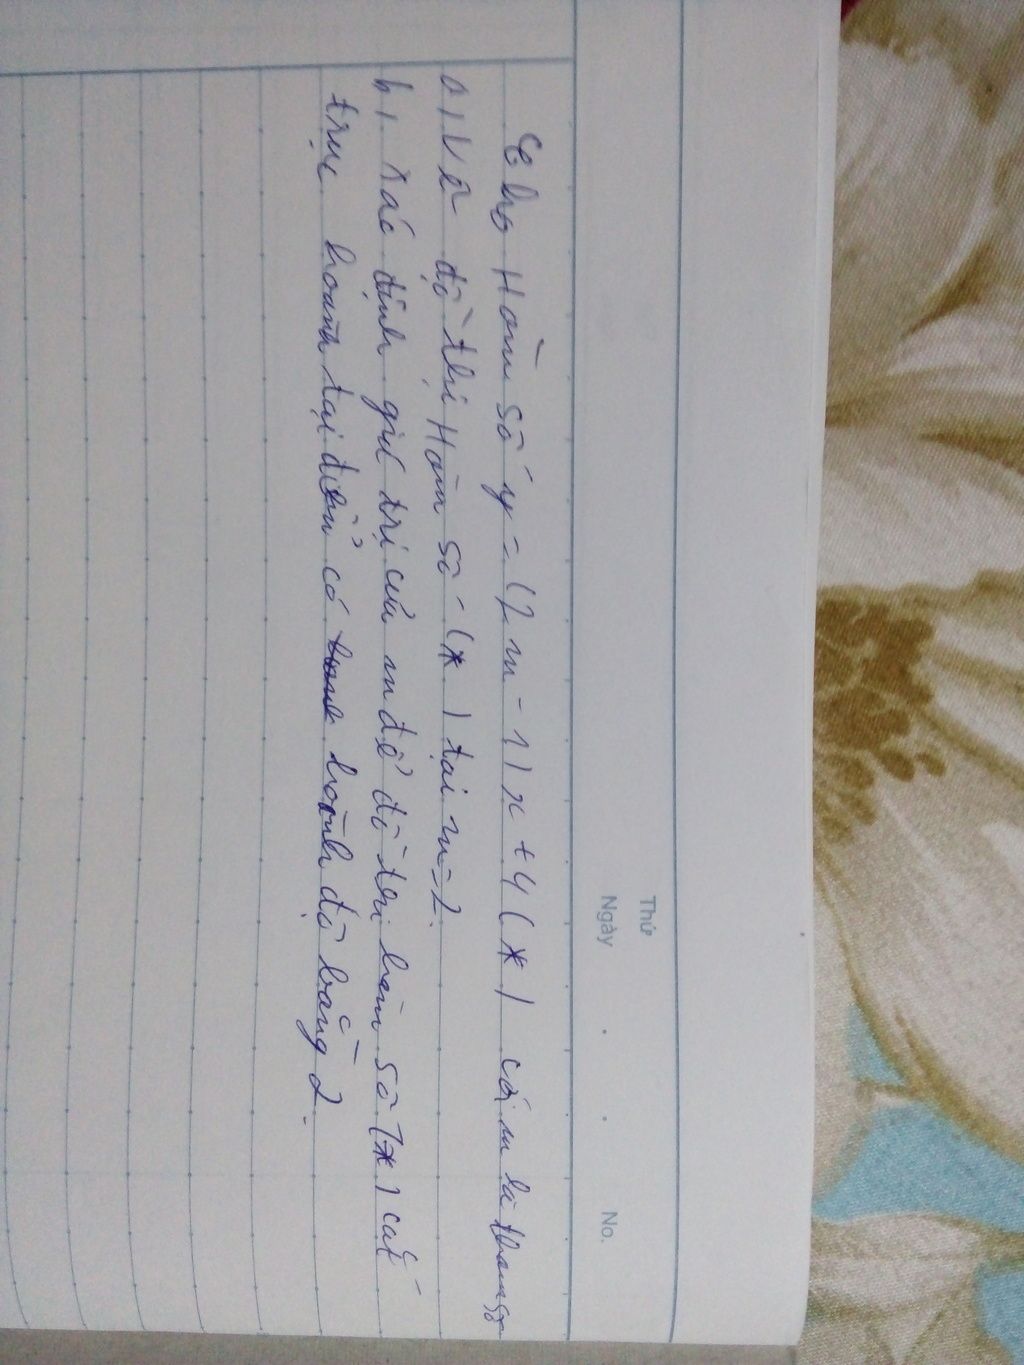 Thứ
Ngày . . No.
Cho Hàm số y = (2m - 1)x + 4 (*) có m là tham số
a, Vẽ đồ thị Hàm số (*) tại m = 2.
b, Xác định giá trị của m để đồ thị hàm số (*) cắt
trục hoành tại điểm có hoành độ bằng 2.